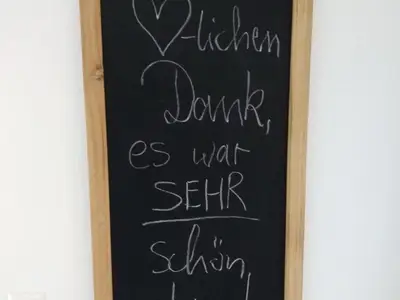 ♡-lichen
Dank,
es war
SEHR
schön,